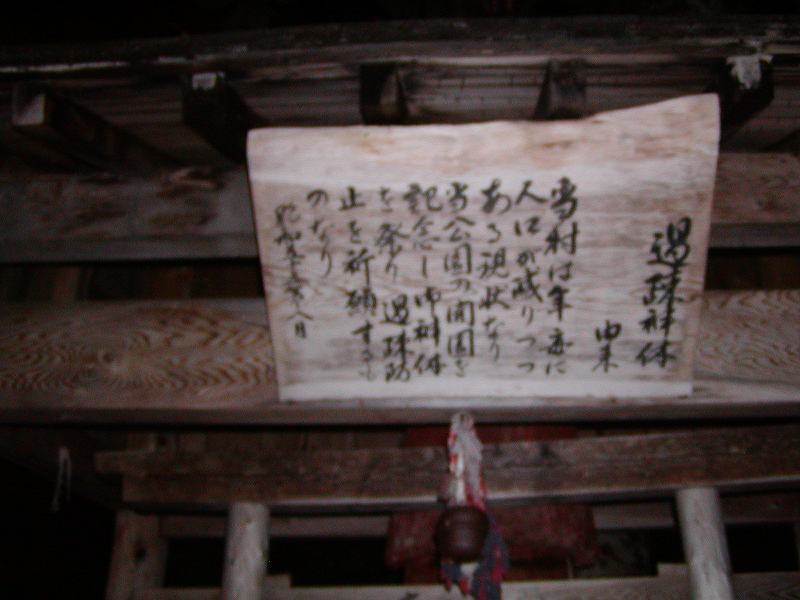 過疎神体
由来
当村は年毎に
人口が減りつつ
ある現状なり
当公園の開園を
記念し御神体
を祭り過疎防
止を祈願するも
のなり
昭和五十 年八月